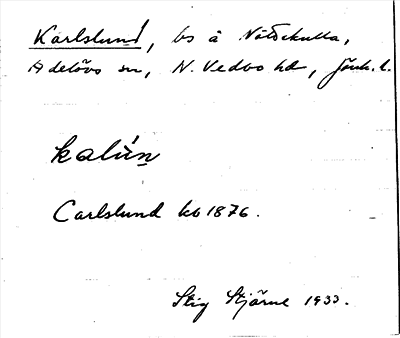 Karlslund, bs å Nötskulla,
Adelövs sn, N. Vedbo hd, Jönk. l.
kalún
Carlslund ko 1876.
Stig Stjärne 1933.